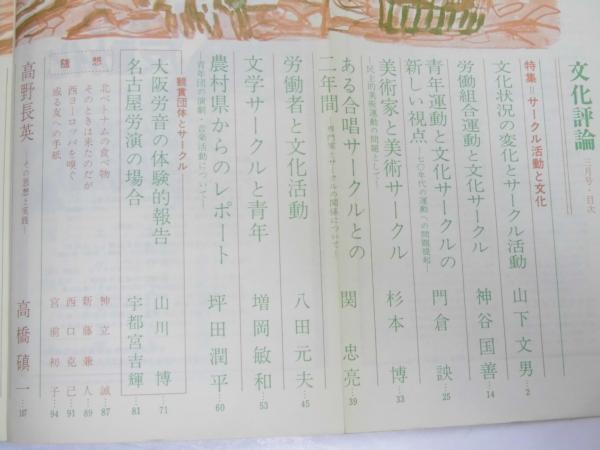 文化評論 三月号・目次
特集＝サークル活動と文化
文化状況の変化とサークル活動 山下文男…2
労働組合運動と文化サークル 神谷国善…14
青年運動と文化サークルの
新しい視点 —七〇年代の運動への問題提起— 門倉 訣…25
美術家と美術サークル 杉本 博…33
—民主的美術運動の問題点として—
ある合唱サークルとの
二年間 —専門家とサークルの関係について— 関 忠亮…39
労働者と文化活動 八田元夫…45
文学サークルと青年 増岡敏和…53
農村県からのレポート 坪田潤平…60
—青年団の演劇・音楽活動について—
観賞団体とサークル
大阪労音の体験的報告 山川 博…71
名古屋労演の場合 宇都宮吉輝…81
随想
北ベトナムの食べ物 神立 誠…87
そのときは来たのだが 新藤兼人…89
西ヨーロッパを嗅ぐ 西口克己…91
或る友への手紙 宮前初子…94
高野長英 —その思想と実践— 高橋磌一…107